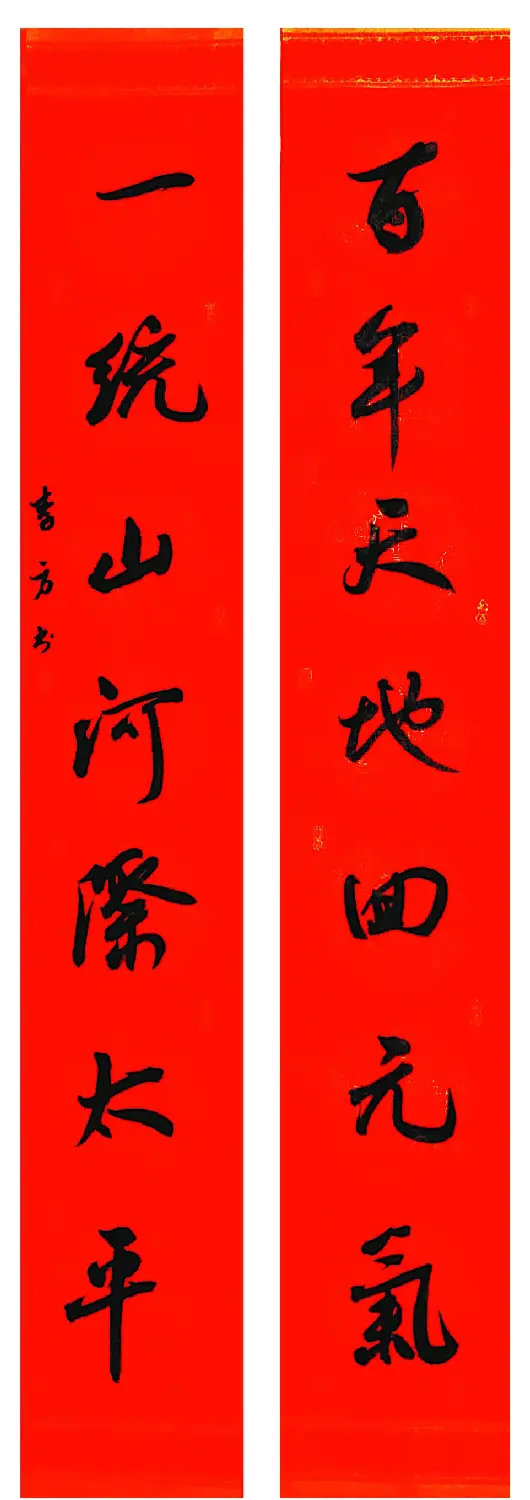 百年天地回元氣
一統山河際太平
李方书